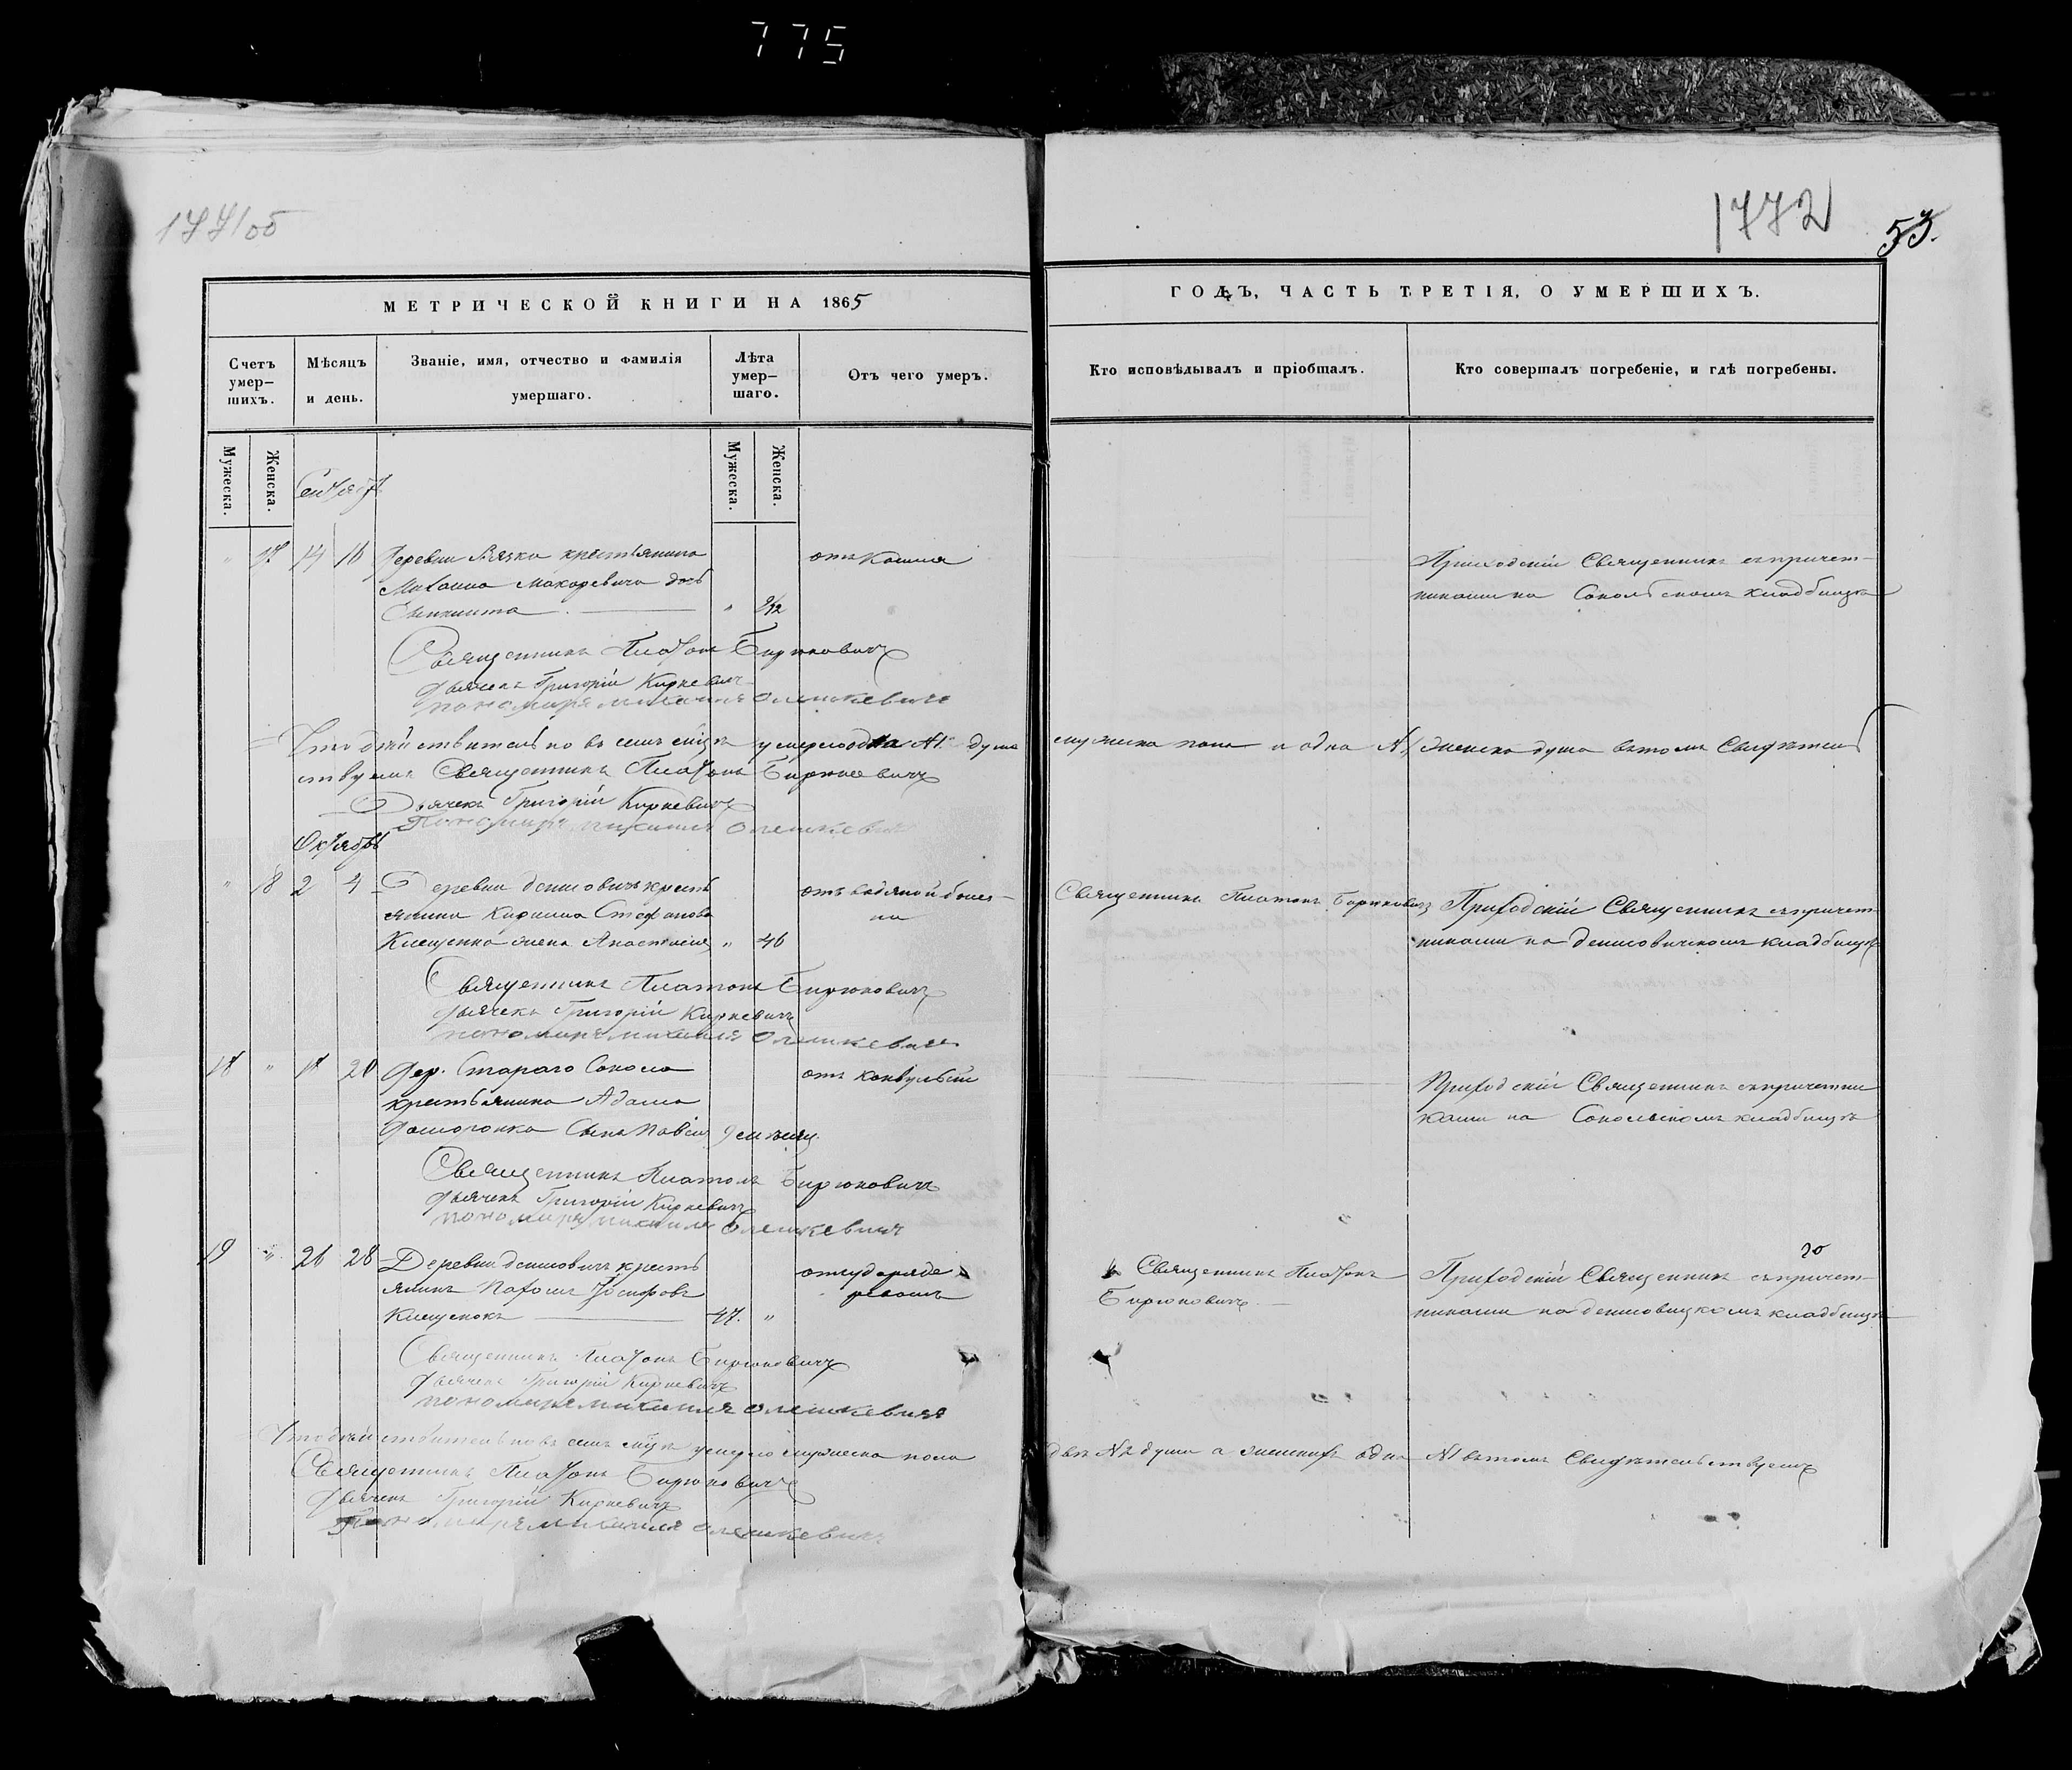 775
1772
53.
МЕТРИЧЕСКОЙ КНИГИ НА 1865
ГОДЪ, ЧАСТЬ ТРЕТІЯ, О УМЕРШИХЪ.
Счетъ умер-шихъ.
Мѣсяцъ и день.
Званіе, имя, отчество и фамилія умершаго.
Лѣта умер-шаго.
Отъ чего умеръ.
Кто исповѣдывалъ и пріобщалъ.
Кто совершалъ погребеніе, и гдѣ погребены.
Мужеска.
Женска.
Мужеска.
Женска.
Сентябрь
" 17 14 16 Деревни крестьянина отъ кашля Приходскій Священникъ съ причет-
Михаила Макаревича дочь никами на Сокольскомъ кладбищѣ
" 9/12
Священникъ Платонъ Бирюковичъ
Дьячекъ Григорій Киркевичъ
пономарь Михаилъ Олешкевичъ
Что дѣйствительно въ семъ м-цѣ умерло одна №1 душа мужеска пола и одна №1 женска душа въ томъ Свидѣтель
ствуемъ Священникъ Платонъ Бирюковичъ
Дьячекъ Григорій Киркевичъ
Пономарь Михаилъ Олешкевичъ
Октябрь
" 18 2 4 Деревни Денисовичъ кресть отъ водяной болез- Священникъ Платонъ Бирюковичъ Приходскій Священникъ съ причет
янина Кирилла Стефанова ни никами на Денисовичскомъ кладбищѣ
Клещенка жена Анастасія " 46
Священникъ Платонъ Бирюковичъ
Дьячекъ Григорій Киркевичъ
пономарь Михаилъ Олешкевичъ
18 " 18 20 Дер. Стараго Сокола отъ конвульсіи Приходскій Священникъ съ причетни
крестьянина Адама ками на Сокольскомъ кладбищѣ
сынъ
Священникъ Платонъ Бирюковичъ
Дьячекъ Григорій Киркевичъ
пономарь Михаилъ Олешкевичъ
19 " 26 28 Деревни Денисовичъ кресть отъ удара де Священникъ Платонъ Приходскій Священникъ съ причет-
янинъ Іосифовъ ревомъ Бирюковичъ никами на Денисовицкомъ кладбищѣ
Клещенокъ 47. "
Священникъ Платонъ Бирюковичъ
Дьячекъ Григорій Киркевичъ
пономарь Михаилъ Олешкевичъ
Что дѣйствительно въ семъ м-цѣ умерло мужеска пола двѣ №2 души а женскихъ одна №1 въ томъ Свидѣтельствуемъ
Священникъ Платонъ Бирюковичъ
Дьячекъ Григорій Киркевичъ
Пономарь Михаилъ Олешкевичъ